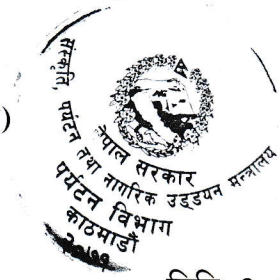 नेपाल सरकार
संस्कृति, पर्यटन तथा नागरिक उड्डयन मन्त्रालय
पर्यटन विभाग
काठमाडौं